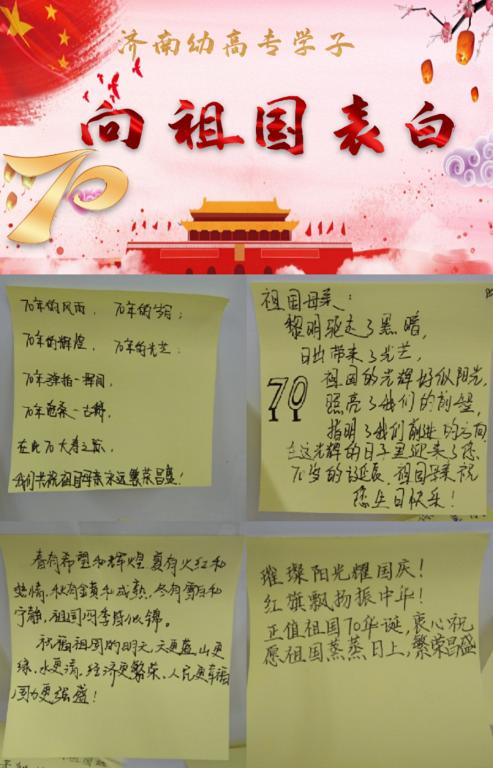 济南幼高专学子
向祖国表白
70
70年的风雨, 70年的岁月;
70年的辉煌, 70年的光芒;
70年弹指一瞬间,
70年沧桑一古稀,
在此70大寿之际,
我们共祝祖国母亲永远繁荣昌盛!
祖国母亲:
黎明驱走了黑暗,
日出带来了光芒,
70
祖国的光辉好似阳光,
照亮了我们的前程,
指明了我们前进的方向
在这光辉的日子里迎来了您
70岁的诞辰,祖国母亲祝
您生日快乐!
春有希望和辉煌,夏有火红和
热情,秋有金黄和成熟,冬有雪白和
宁静,祖国四季似锦。
祝福祖国的明天,天更蓝,山更
绿,水更清,经济更繁荣,人民更幸福
国力更强盛!
璀璨阳光耀国庆!
红旗飘扬振中华!
正值祖国70华诞,衷心祝
愿祖国蒸蒸日上,繁荣昌盛